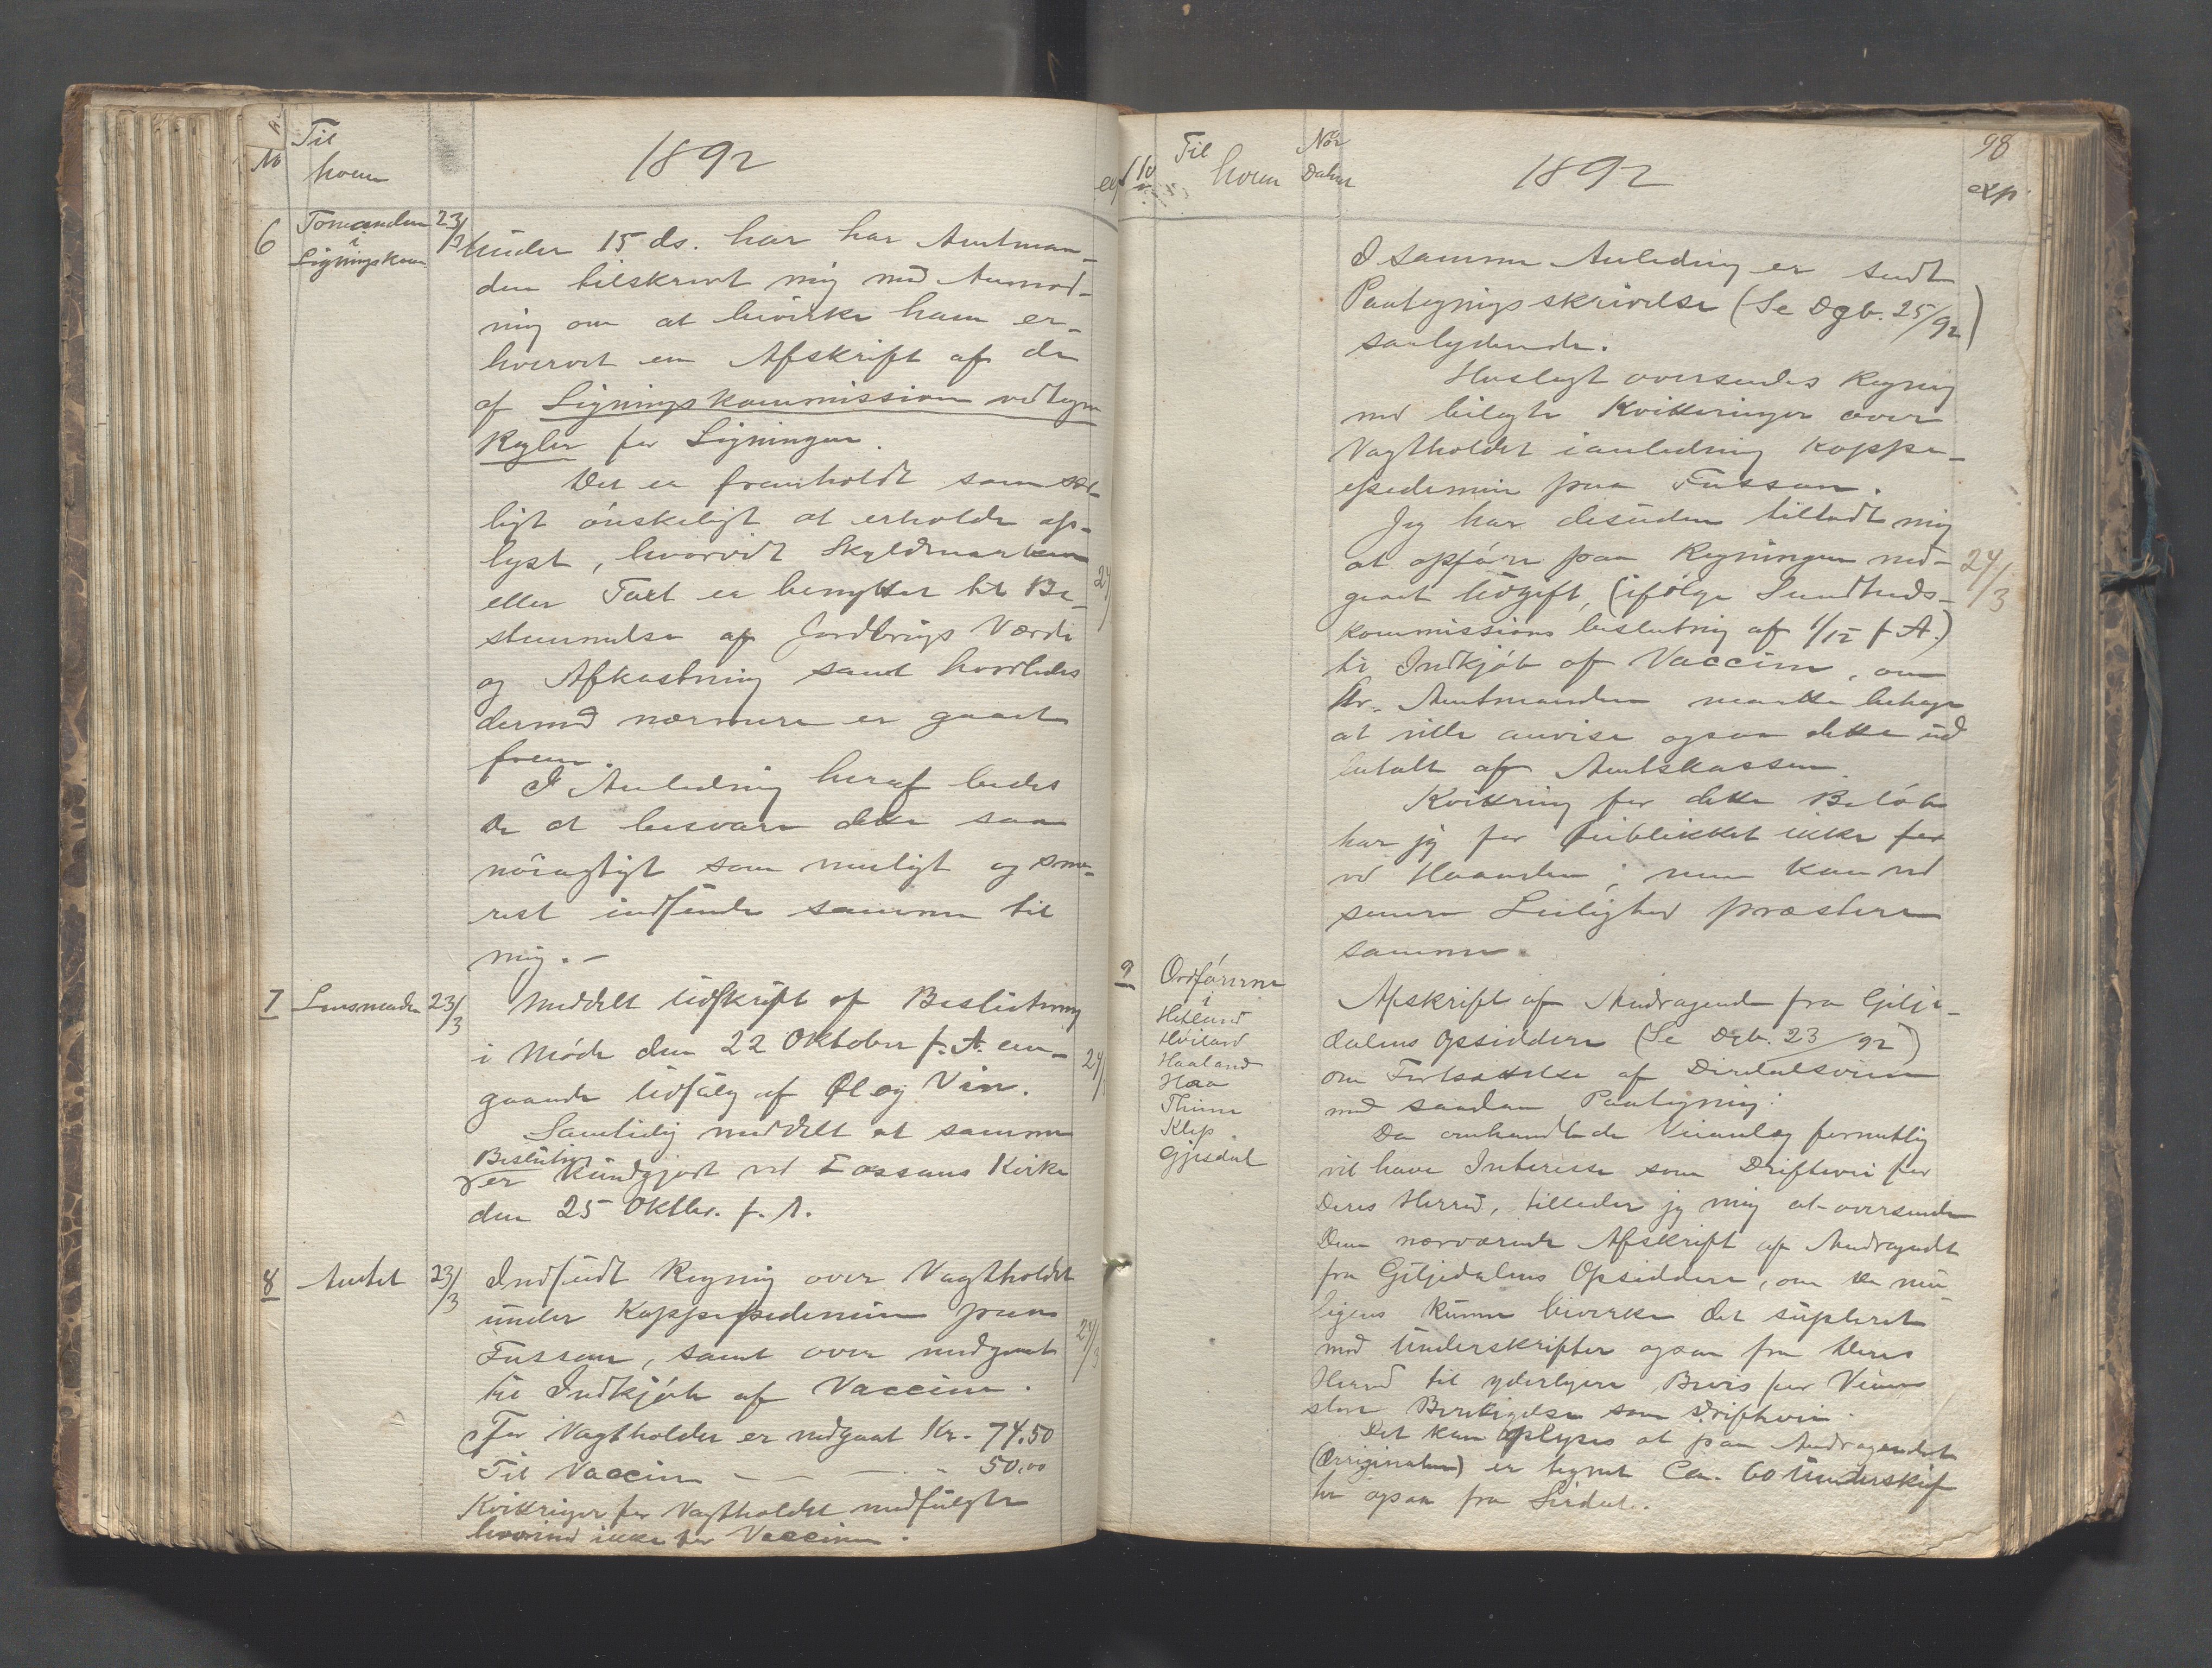 No
Til
hvem
1892
exp
6
Formanden
i
Ligningskom.
23/3
Under 15 ds. har har Amtman-
den tilskrevet mig med Anmod-
ning om at bevirke ham er-
hvervet en Afskrift af de
af Ligningskommission vedtagne
Regler for Ligningen.
Det er fremholdt som sær-
ligt ønskeligt at erholde op-
lyst, hvorvidt Skyldmarken
eller Taxt er benyttet til Be-
24/
stemmelse af Jordbrugs Værdi
og Afkastning samt hvorledes
dermed nærmere er gaaet
frem.
I Anledning heraf bedes
De at besvare dette saa
nøiagtigt som muligt og sna-
rest indsende samme til
mig. -
7
Lensmanden
23/3
Meddelt Udskrift af Beslutning
i Møde den 22 Oktober f. A. an-
24/
gaaende Udsalg af Øl og Vin.
Samtidig meddelt at samme
Beslutning
er kundgjort ved Fossans Kirke
den 25 Oktbr. f. A.
8
Amtet
23/3
Indsendt Regning over Vagtholdet
under Koppeepedemien paa
24/3
Fossan, samt over medgaaet
til Indkjøb af Vaccine.
For Vagtholdet er medgaat Kr. 74.50
Til Vaccin — — — 50,00
Kvitteringer for Vagtholdet medfulgte
hvorimod ikke for Vaccinen.
No
Til
hvem
Naar
Datert
1892
98
exp.
I samme Anledning er sendt
Paategningsskrivelse (Se Dgb. 25/92)
saalydende.
Hoslagt oversendes Regning
med bilagte Kvitteringer over
Vagtholdet i anledning Koppe-
epedemien paa Fossan.
Jeg har desuden tilladt mig
at opføre paa Regningen med-
24/3
gaaet Udgift, (ifølge Sundheds-
kommissions beslutning af 1/12 f. A.)
til Indkjøb af Vaccine, om
Hr. Amtmanden maatte behage
at ville anvise ogsaa dette ud
betalt af Amtskassen.
Kvittering for dette Beløb
har jeg for Øieblikket ikke for
ved Haanden; men kan ved
senere Leilighed præstere
samme.
9
Ordførerne
i
Hetland
Høiland
Haaland
Haa
Thime
Klep
Gjesdal
Afskrift af Andragende fra Gilje-
dalens Opsiddere (Se Dgb. 23/92)
om Fortsættelse af Dirdalsveien
med saadan Paategning:
Da omhandlede Veianlæg formentlig
vil have Interesse som Driftevei for
Deres Herred, tillader jeg mig at oversende
Dem nærværende Afskrift af Andragendet
fra Giljedalens Opsiddere, om De mu-
ligens kunne bevirke det supleret
med Underskrifter ogsaa fra Deres
Herred til yderligere Bevis for Veiens
store Berettigelse som Driftevei.
Det kan oplyses at paa Andragendet
(Orriginalen) er tegnet Ca. 60 Underskrif
ter ogsaa fra Sirdal.